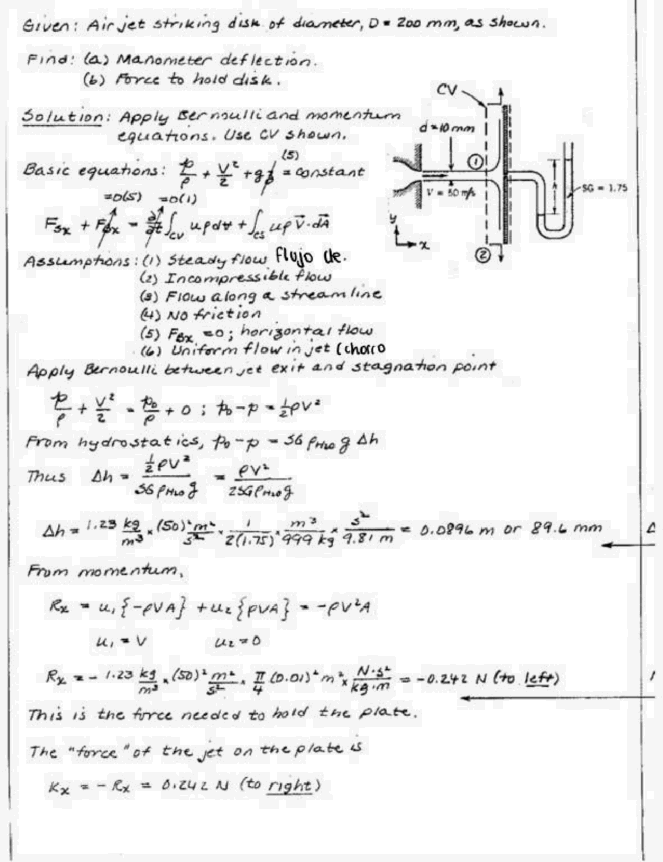 Given: Air jet striking disk of diameter, D = 200 mm, as shown.
Find: (a) Manometer deflection.
(b) Force to hold disk.
Solution: Apply Bernoulli and momentum
equations. Use CV shown.
CV
d = 10 mm
①
V = 50 m/s
h
SG = 1.75
y
x
②
Basic equations: p/ρ + V²/2 + gz = constant
(5)
=0(5) =0(1)
F_Sx + F_Bx = ∂/∂t ∫_CV uρd∀ + ∫_CS uρV⃗·dA⃗
Assumptions: (1) Steady flow Flujo de.
(2) Incompressible flow
(3) Flow along a streamline
(4) No friction
(5) F_Bx = 0; horizontal flow
(6) Uniform flow in jet (chorro
Apply Bernoulli between jet exit and stagnation point
p/ρ + V²/2 = p₀/ρ + 0 ; p₀ - p = ½ρV²
From hydrostatics, p₀ - p = SG ρ_H₂O g Δh
Thus Δh = ½ρV² / SG ρ_H₂O g = ρV² / 2SG ρ_H₂O g
Δh = 1.23 kg/m³ × (50)² m²/s² × 1/2(1.75) × m³/999 kg × s²/9.81 m = 0.0896 m or 89.6 mm
From momentum,
Rx = u₁{-ρVA} + u₂{ρVA} = -ρV²A
u₁ = V u₂ = 0
Rx = - 1.23 kg/m³ × (50)² m²/s² × π/4 (0.01)² m² × N·s²/kg·m = -0.242 N (to left)
This is the force needed to hold the plate.
The "force" of the jet on the plate is
Kx = - Rx = 0.242 N (to right)